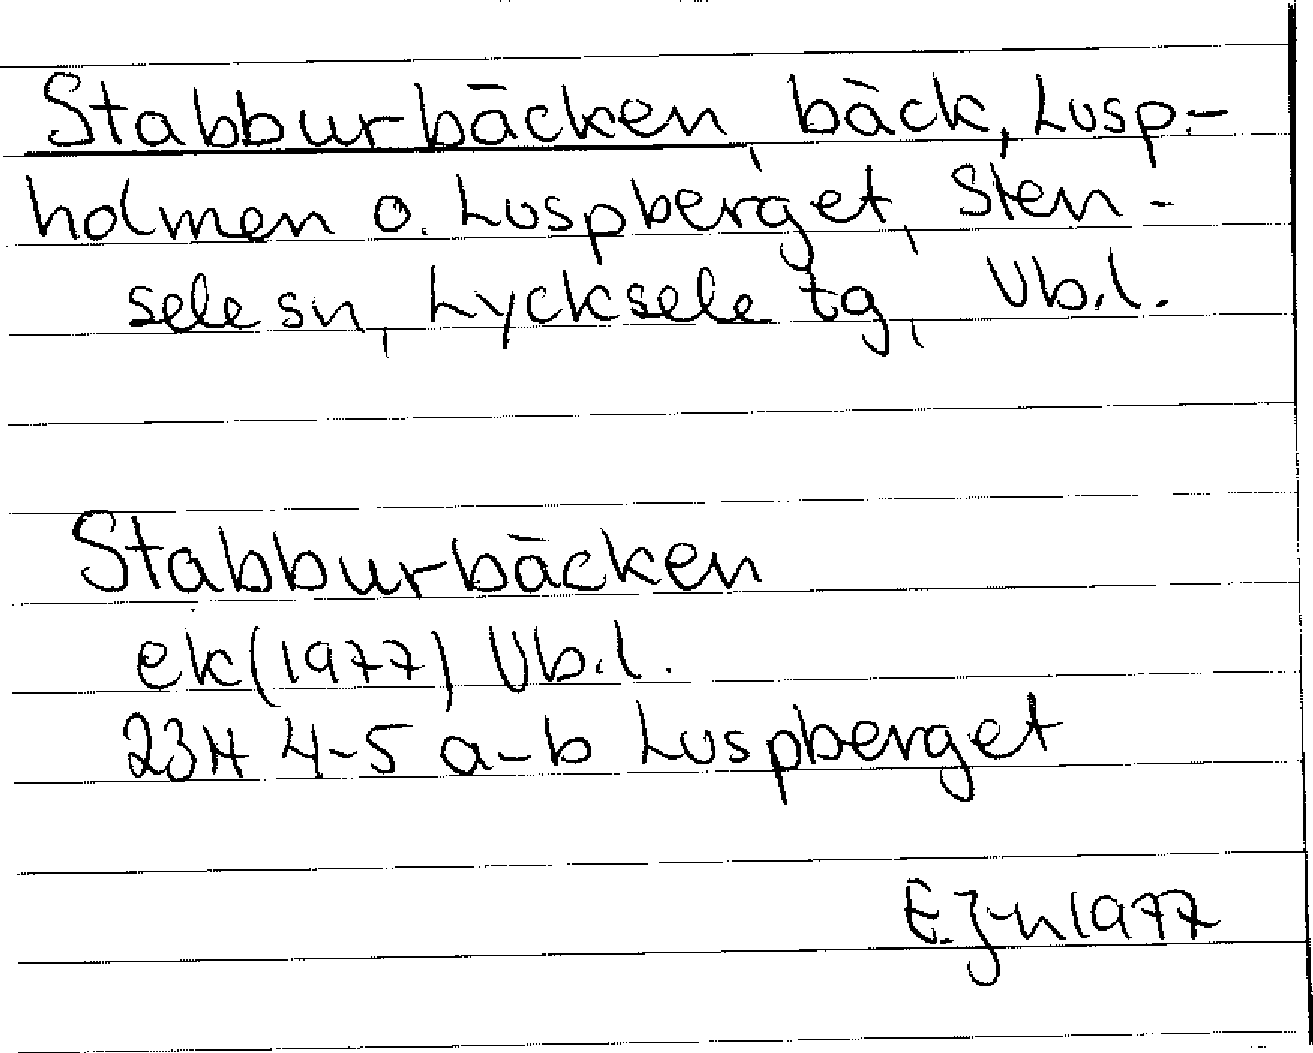 Stabburbäcken, bäck, Lusp-
holmen o. Luspberget, Sten-
sele sn, Lycksele tg, Vb.l.
Stabburbäcken
ek(1977) Vb.l.
23H 4-5 a-b Luspberget
E.J-n 1977